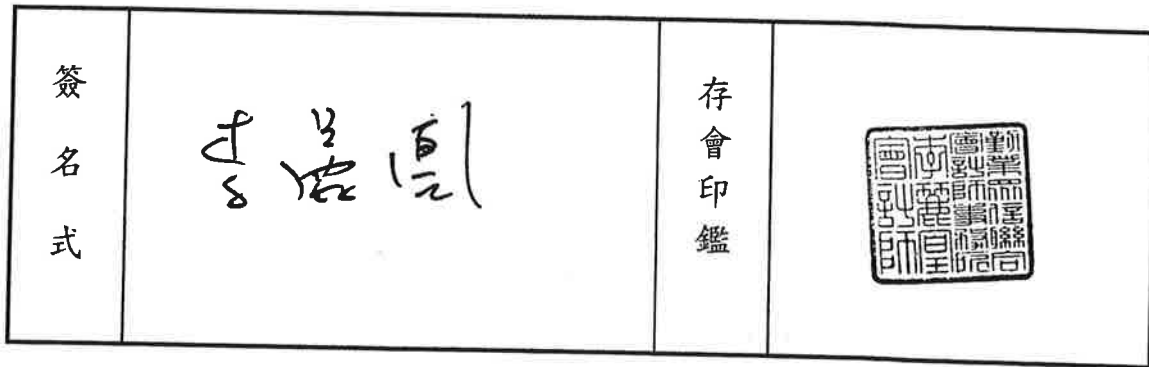 簽名式
李麗凰
存會印鑑
勤業眾信聯合
會計師事務所
李麗凰
會計師